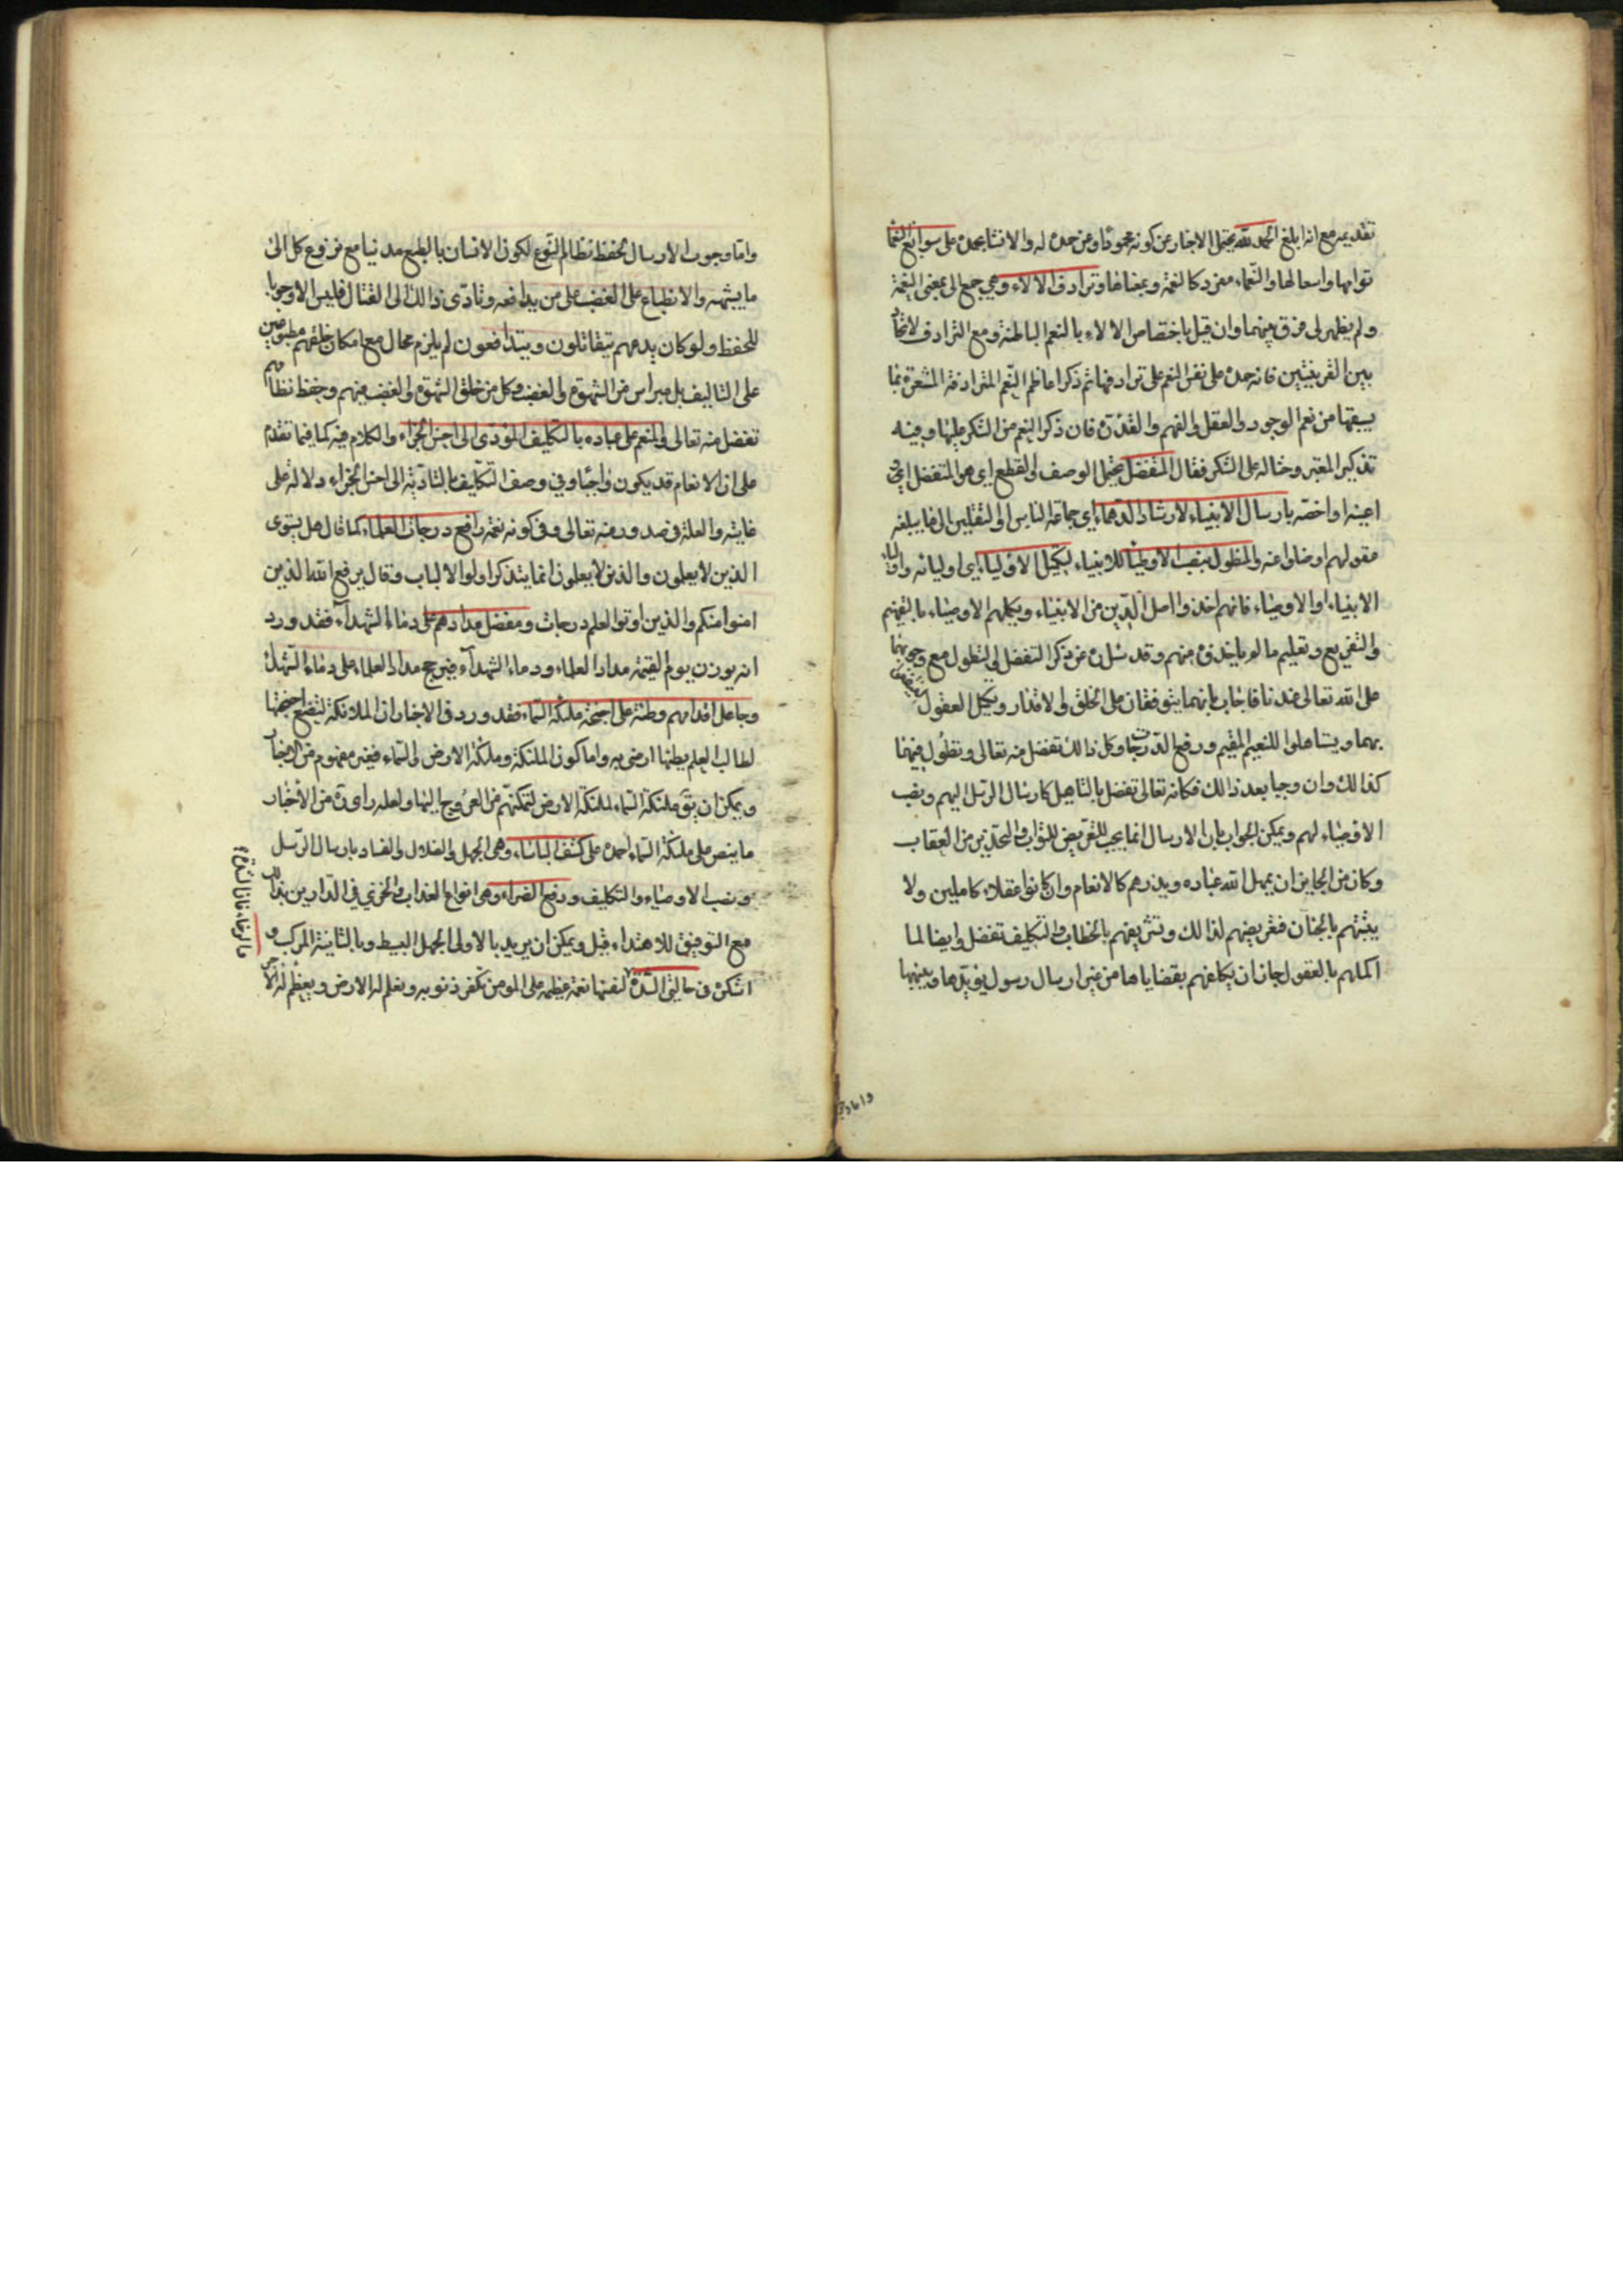 تقديمه مع انه ابلغ الحمد لله يحتمل الاخبار عن كونه محمودا وعن حمده له والانشا بحمده على سوابغ النعما
توامها واسعا لها والنعماء مفرد كالنعمة وبمعناها وترادف الالاء وهي جمع الى بمعنى النعمة
ولم يظهر لى فرق بينهما وان قيل باختصاص الالاء بالنعم الباطنة ومع الترادف لاتحاد
بين القرينتين فانه حمده على نفس النعم على ترادفها ثم ذكر اعاظم النعم المترادفة المشعرة بما
يسبقها من نعم الوجود والعقل والفهم والقدرة فان ذكر النعم من الشكر عليها وفيه
تذكير المعتبر وحثا له على الشكر فقال المتفضل يحتمل الوصف والقطع اي هو المتفضل اي
اعينه او اخصه بارسال الانبياء لارشاد الدهماء اي جماعة الناس او الثقلين
مقولهم او ضلوا عنه والمتطول بنصب الاوصياء للانبياء لتكميل الاولياء اى اوليائه
الانبياء او الاوصياء فانهم اخذوا اصل الدين من الانبياء ويكملهم الاوصياء بالتفهيم
والتفريع وتعليم ما لم ياخذوه منهم وقد سئل عن ذكر التفضل والتطول مع وجوبهما
على الله تعالى عندنا فاجاب بانهما يتوقفان على الخلق والاقدار وتكميل العقول
بهما ويستاهلوا للنعيم المقيم ورفع الدرجات وكل ذالك تفضل منه تعالى وتطول فيهما
كذالك وان وجبا بعد ذالك فكانه تعالى تفضل بالتاهيل كارسال الرسل اليهم ونصب
الاوصياء لهم ويمكن الجواب بان الارسال انما يجب للتعريض للثواب والتحذير من العقاب
وكان من الجايز ان يهمل الله عباده ويذرهم كالانعام وان كانوا عقلاء كاملين ولا
يثبتهم بالجنان فتعريضهم لذالك وتشريفهم بالخطاب والتكليف تفضل وايضا لما
اكملهم بالعقول جاز ان يكلفهم بقضاياها من غير ارسال رسول يؤيدها وينبها
واما وجوب
واما وجوب الارسال لحفظ نظام النوع لكون الانسان بالطبع مدنيا مع نزوع كل الى
ما يشتهيه والانطباع على الغضب على من يدافعه وتادى ذالك الى القتال فليس الا وجوبا
للحفظ ولو كان يدعهم يتقاتلون ويتدافعون لم يلزم محال مع امكان خلقهم مطبوعين
على التاليف بل مبراس من الشهوة والغضب وكل من خلق الشهوة والغضب فيهم وحفظ نظامهم
تفضل منه تعالى والمنعم على عباده بالتكليف المؤدى الى احسن الجزاء والكلام فيه كما فيما تقدم
على ان الانعام قد يكون واجبا وفي وصف التكليف بالتادية الى احسن الجزاء دلالة على
غايته والعلة في صدوره منه تعالى وفي كونه نعمة رافع درجات العلماء كما قال هل يستوى
الذين لا يعلمون والذين لا يعلمون انما يتذكر اولوا الالباب وقال يرفع الله الذين
امنوا منكم والذين اوتوا العلم درجات ومفضل مدادهم على دماء الشهداء فقد ورد
انه يوزن يوم القيمة مداد العلماء ودماء الشهداء فيرجح مداد العلماء على دماء الشهداء
وجاعل اقدامهم وطئة على اجنحة ملئكة السماء فقد ورد في الاخبار ان الملائكة لتضع اجنحتها
لطالب العلم يطئها ارضى به واما كون الملئكة وملئكة الارض والسماء فغير مفهوم من الاخبار
ويمكن ان يتق ملئكة السماء لملئكة الارض لتمكنهم من العروج اليها ولعله راى في من الاخبار
ما ينص على ملئكة السماء احمده على كشف الباساء وهي الجهل والضلال والفساد بارسال الرسل
ونصب الاوصياء والتكليف ودفع الضراء وهي انواع العذاب والخزي في الدارين بذالك
مع التوفيق للاهتداء قيل ويمكن ان يريد بالاولى الجهل البسيط وبالثانية المركب و
اشكره في حالتى الشدة لنفسها نعمة عظيمة على المومن تكفر ذنوبه وتعلم له الارض ويعظم له الاجر